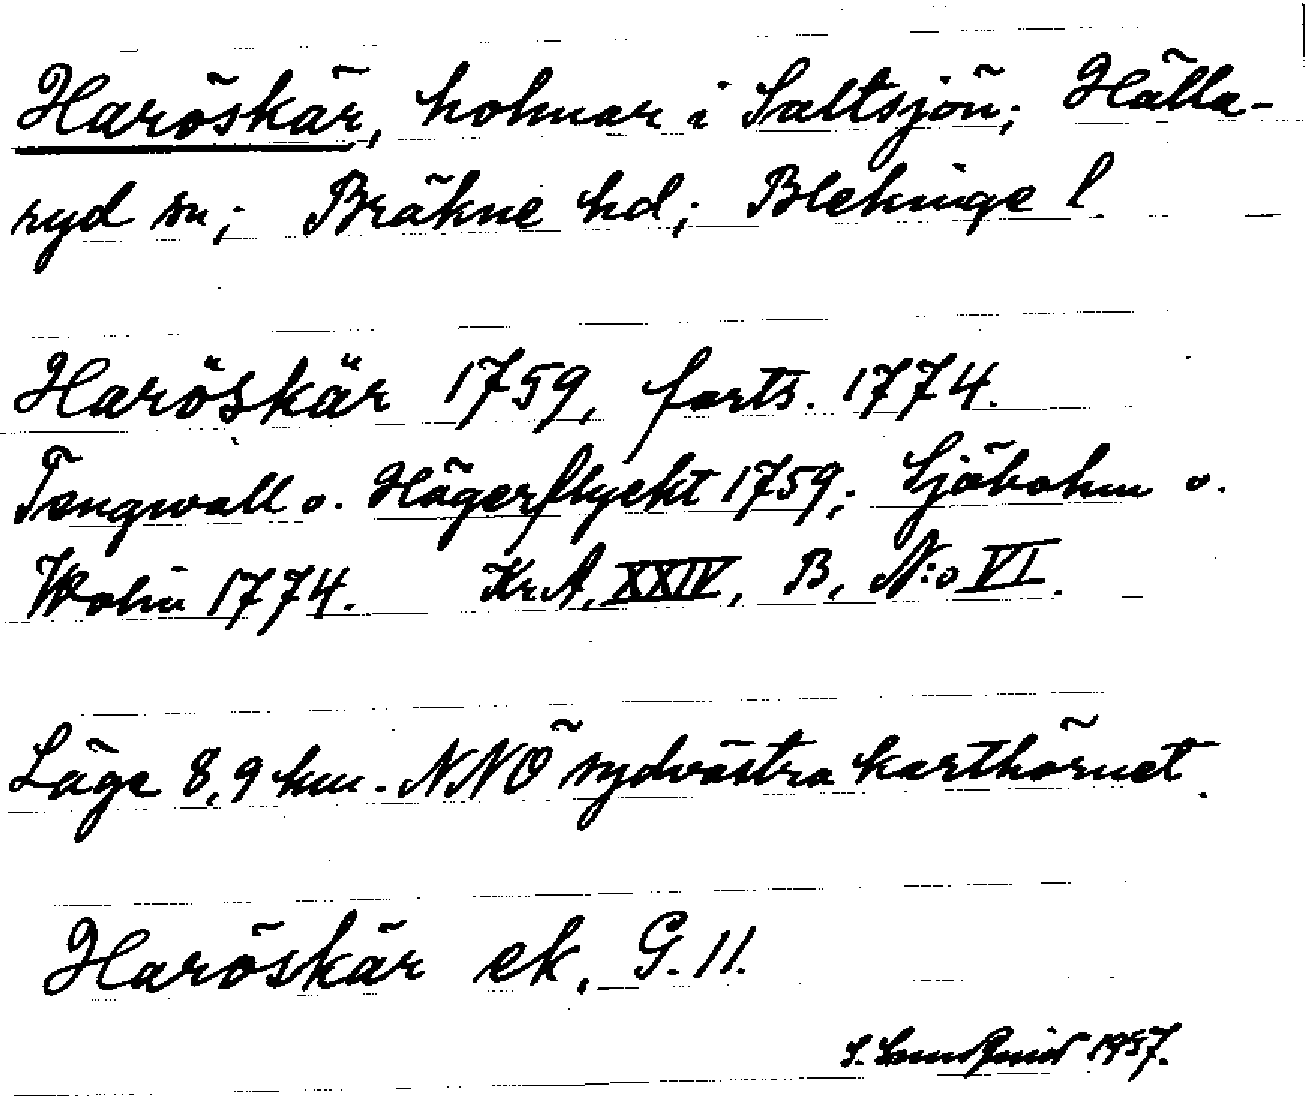 Haröskär, holmar i Saltsjön; Hälla-
ryd sn; Bräkne hd; Blekinge l.
Haröskär 1759, forts. 1774.
Tengwall o. Hägerflycht 1759; Sjöbohm o.
Wolin 1774. Kr.A, XXIV, B, N:o VI.
Läge 8,9 km. NNÖ sydvästra karthörnet.
Haröskär ek, G. 11.
S. 1957.